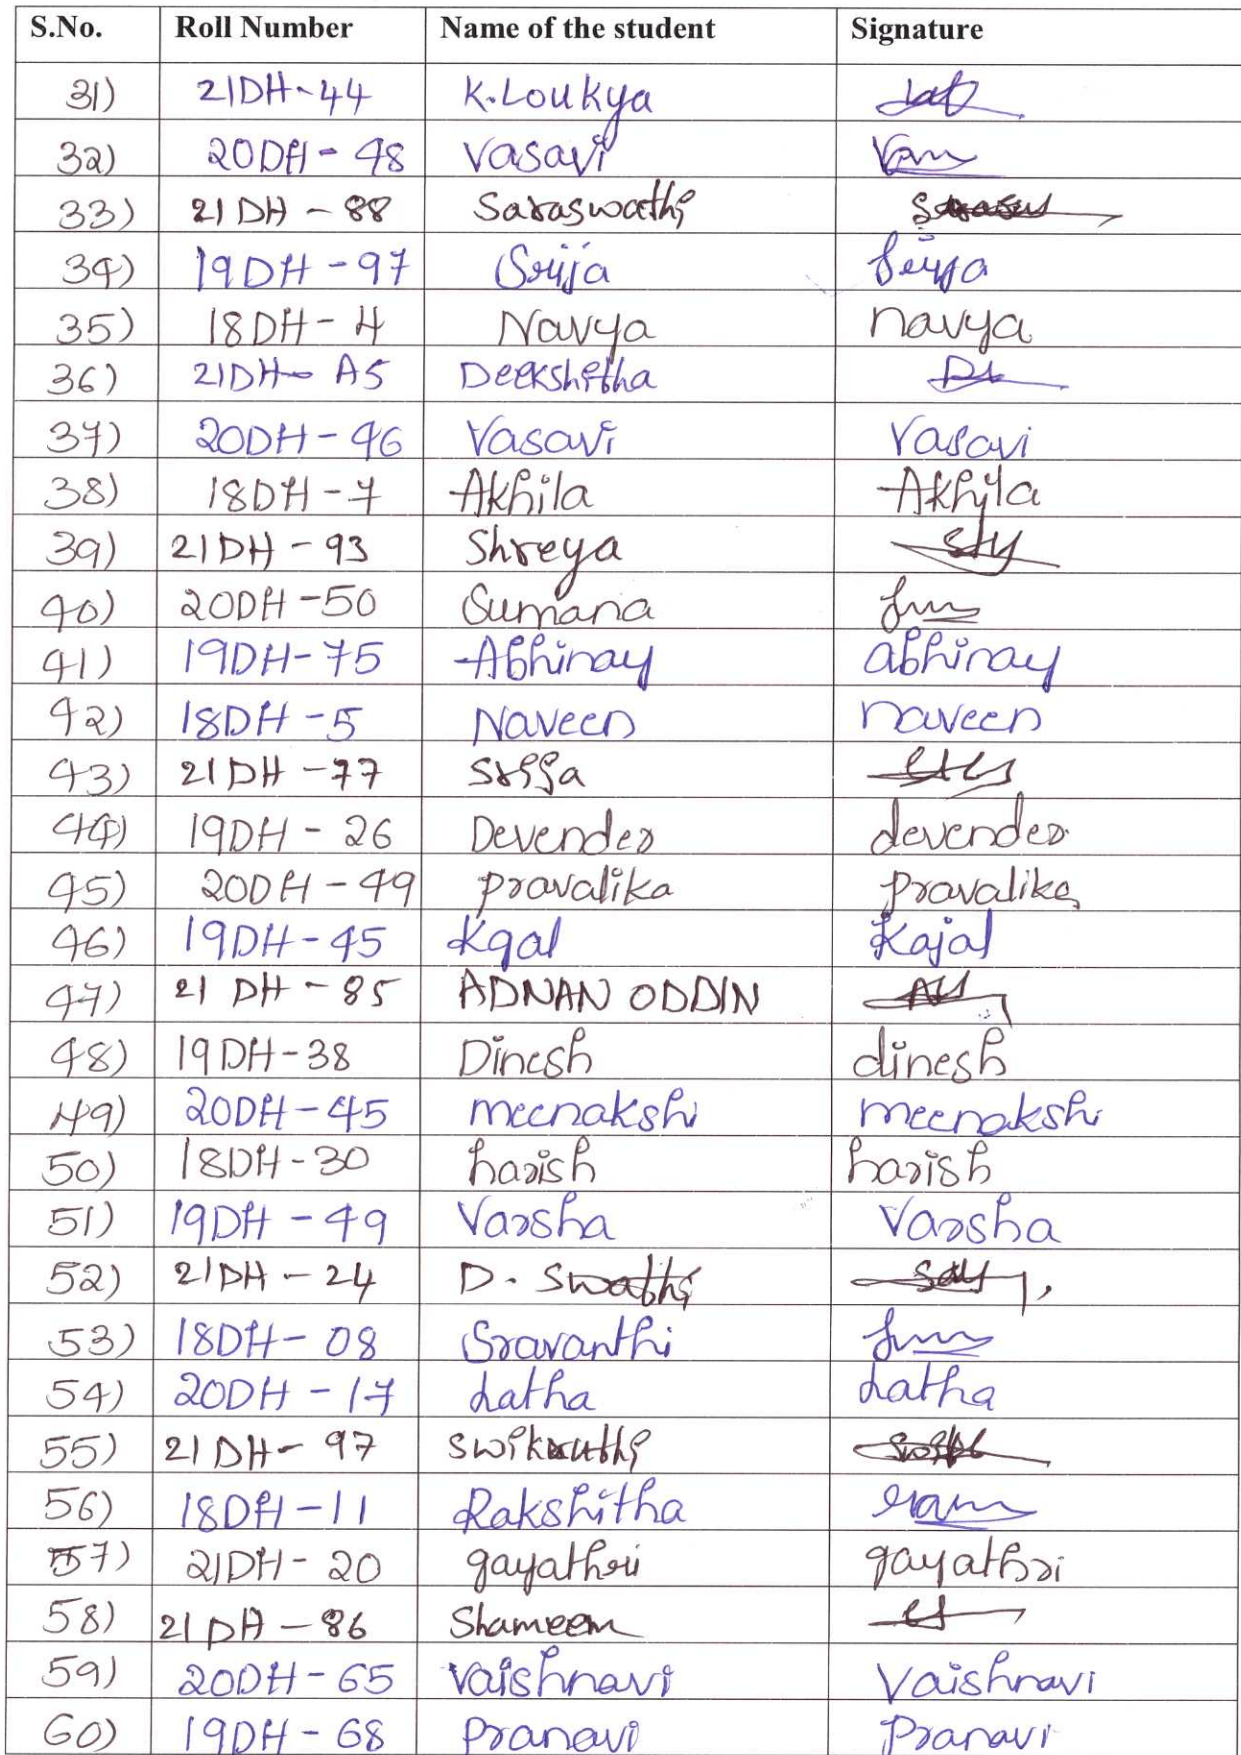 S.No. Roll Number Name of the student Signature
31) 21DH-44 K.Loukya
32) 20DH-48 Vasavi
33) 21DH-88 Saraswathi
34) 19DH-97 Srija Srija
35) 18DH-4 Navya navya
36) 21DH-A5 Deekshitha
37) 20DH-46 Vasavi Vasavi
38) 18DH-7 Akhila Akhila
39) 21DH-93 Shreya
40) 20DH-50 Sumana
41) 19DH-75 Abhinay abhinay
42) 18DH-5 Naveen naveen
43) 21DH-77 Srija
44) 19DH-26 Devender devender
45) 20DH-49 pravalika pravalika
46) 19DH-45 Kajal Kajal
47) 21DH-85 ADNAN ODDIN
48) 19DH-38 Dinesh dinesh
49) 20DH-45 meenakshi meenakshi
50) 18DH-30 harish harish
51) 19DH-49 Varsha Varsha
52) 21DH-24 D. Swathi
53) 18DH-08 Sravanthi
54) 20DH-17 Latha Latha
55) 21DH-97 Swikruthi
56) 18DH-11 Rakshitha
57) 21DH-20 gayathri gayathri
58) 21DH-86 Shameem
59) 20DH-65 Vaishnavi Vaishnavi
60) 19DH-68 Pranavi Pranavi